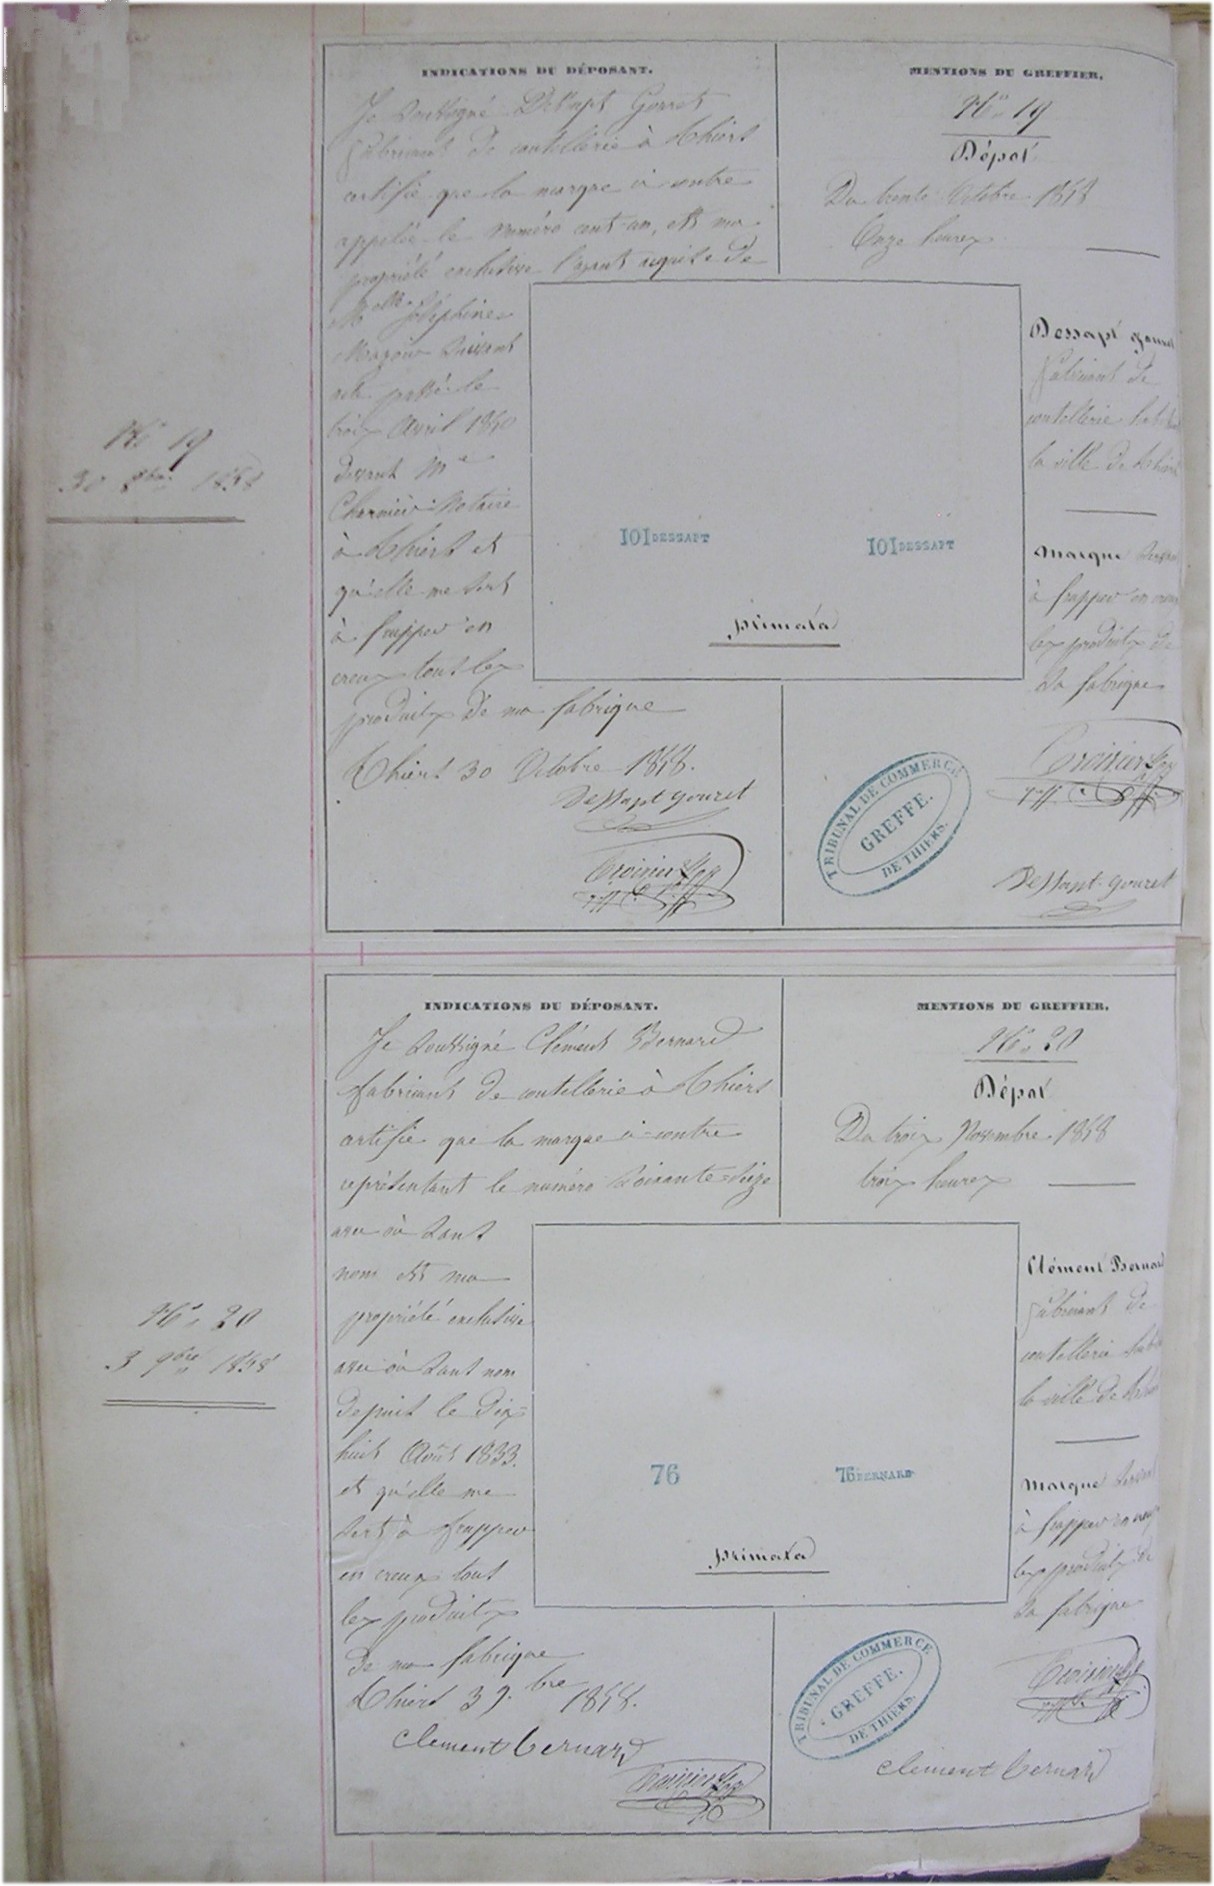 INDICATIONS DU DÉPOSANT.
Je soussigné Dessapt Gouret
fabricant de coutellerie à Thiers
certifie que la marque ci contre
appelée le numéro cent-un, est ma
propriété exclusive l'ayant acquise de
Melle Joséphine
suivant
acte passé le
trois Avril 1840
devant Me
Notaire
à Thiers et
qu'elle me sert
à frapper en
creux tous les
produits de ma fabrique
Thiers 30 Octobre 1858.
Dessapt Gouret
MENTIONS DU GREFFIER.
No 19
Dépôt
Du trente Octobre 1858
Onze heures
Dessapt Gouret
fabricant de
coutellerie
la ville de Thiers
Marque servant
à frapper en creux
les produits de
sa fabrique
Dessapt-Gouret
No 19
30 8bre 1858
101 DESSAPT
101 DESSAPT
primata
TRIBUNAL DE COMMERCE
GREFFE.
DE THIERS.
INDICATIONS DU DÉPOSANT.
Je soussigné Clément Bernard
fabricant de coutellerie à Thiers
certifie que la marque ci-contre
représentant le numéro soixante-seize
avec ou sans
nom est ma
propriété exclusive
avec ou sans nom
depuis le dix-
huit Août 1833.
et qu'elle me
sert à frapper
en creux tous
les produits
de ma fabrique
Thiers 3 9.bre 1858.
clement bernard
MENTIONS DU GREFFIER.
No 20
Dépôt
Du trois Novembre 1858
trois heures
Clément Bernard
fabricant de
coutellerie
la ville de Thiers
Marque servant
à frapper en creux
les produits de
sa fabrique
clement bernard
No 20
3 9bre 1858
76
76 BERNARD
primata
TRIBUNAL DE COMMERCE
GREFFE.
DE THIERS.